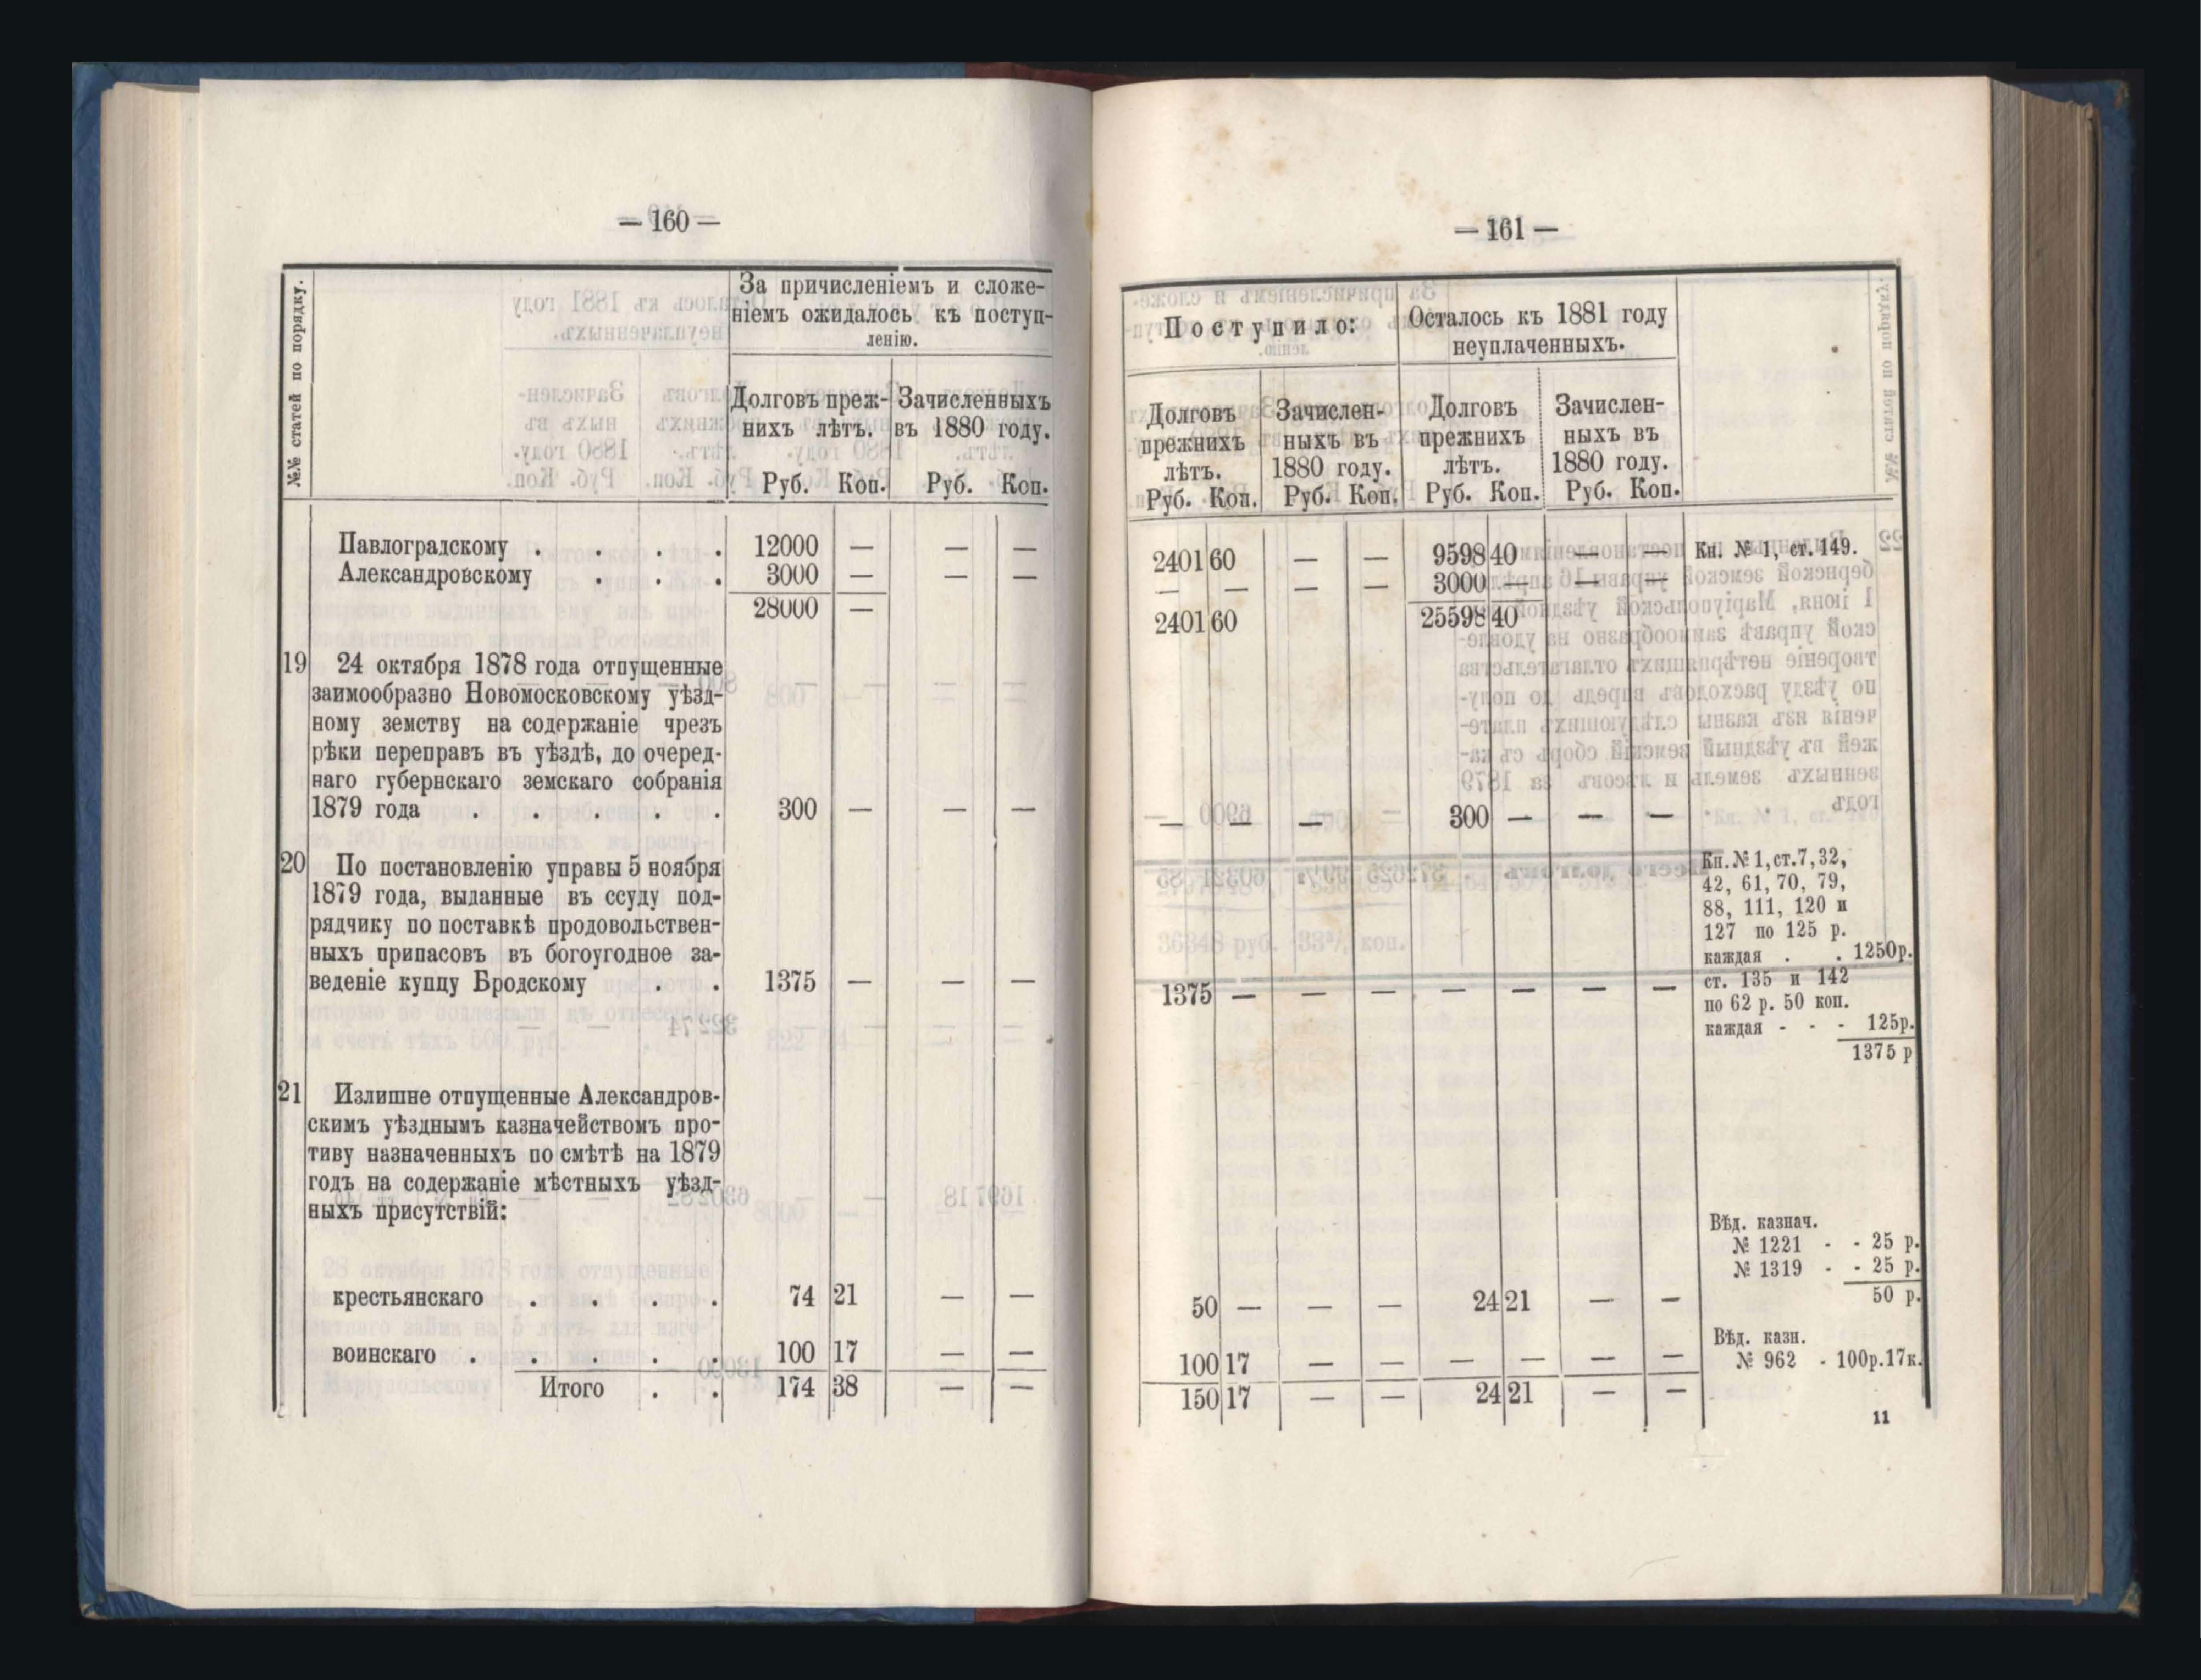 — 160 —
№№ статей по порядку.
За причисленіемъ и сложе-
ніемъ ожидалось къ поступ-
ленію.
Долговъ преж-
нихъ лѣтъ.
Зачисленныхъ
въ 1880 году.
Руб. Коп. Руб. Коп.
Павлоградскому . . . . 12000 — — —
Александровскому . . . 3000 — — —
28000 —
19 24 октября 1878 года отпущенные
заимообразно Новомосковскому уѣзд-
ному земству на содержаніе чрезъ
рѣки переправъ въ уѣздѣ, до очеред-
наго губернскаго земскаго собранія
1879 года . . . . . 300 — — —
20 По постановленію управы 5 ноября
1879 года, выданные въ ссуду под-
рядчику по поставкѣ продовольствен-
ныхъ припасовъ въ богоугодное за-
веденіе купцу Бродскому . . 1375 — — —
21 Излишне отпущенные Александров-
скимъ уѣзднымъ казначействомъ про-
тиву назначенныхъ по смѣтѣ на 1879
годъ на содержаніе мѣстныхъ уѣзд-
ныхъ присутствій:
крестьянскаго . . . . 74 21 — —
воинскаго . . . . . 100 17 — —
Итого . . 174 38 — —
— 161 —
Поступило:
Осталось къ 1881 году
неуплаченныхъ.
Долговъ
прежнихъ
лѣтъ.
Зачислен-
ныхъ въ
1880 году.
Долговъ
прежнихъ
лѣтъ.
Зачислен-
ныхъ въ
1880 году.
Руб. Коп. Руб. Коп. Руб. Коп. Руб. Коп.
2401 60 — — 9598 40 — — Кн. № 1, ст. 149.
— — — — 3000 — — —
2401 60 25598 40
— — — 300 — — —
Кн. № 1, ст. 7, 32,
42, 61, 70, 79,
88, 111, 120 и
127 по 125 р.
каждая . . 1250р.
1375 — — — — — — —
ст. 135 и 142
по 62 р. 50 коп.
каждая - - - 125р.
1375 р
Вѣд. казнач.
№ 1221 - - 25 р.
№ 1319 - - 25 р.
50 р.
50 — — — 24 21 — —
Вѣд. казн.
100 17 — — — — — — № 962 - 100р.17к.
150 17 — — 24 21 — —
11